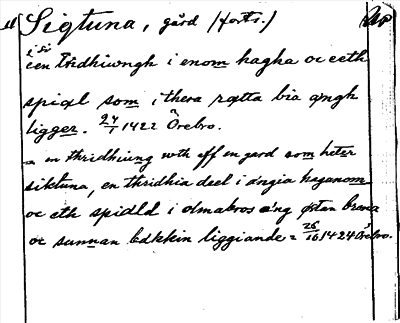 Sigtuna, gård (forts.)
i si
een thridhiwngh i enom hagha oc eeth
spiæl som i thera rætta bia ængh
ligger. 24/1 1422 Örebro.
= en thridhiung wth aff en gard som heter
siktuna, en thridhia deel i ængia haganom
oc eth spiæld i almabros æng østan
oc sunnan bækkin liggiande = 25/10 1424 Örebro.